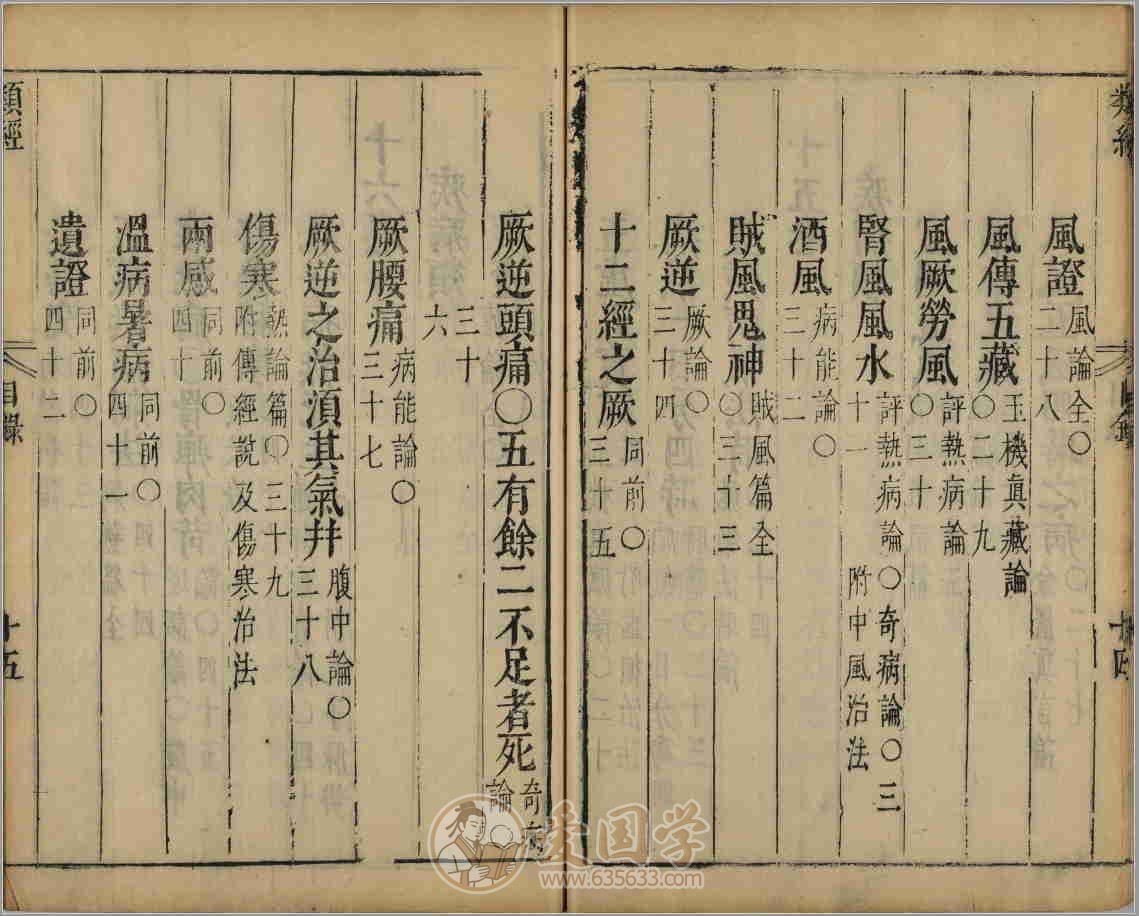 類經
目錄
十四
風證 風論全〇二十八
風傳五藏 玉機真藏論〇二十九
風厥勞風 評熱病論〇三十
腎風風水 評熱病論〇奇病論〇三十一 附中風治法
酒風 病能論〇三十二
賊風鬼神 賊風篇全〇三十三
厥逆 厥論〇三十四
十二經之厥 同前〇三十五
厥逆頭痛〇五有餘二不足者死 奇病論
三十六
厥腰痛 病能論〇三十七
厥逆之治須其氣并 腹中論〇三十八
傷寒 熱論篇〇三十九 附傳經說及傷寒治法
兩感 同前〇四十
溫病暑病 同前〇四十一
遺證 同前〇四十二
類經
目錄
十五
爱国学
www.635633.com